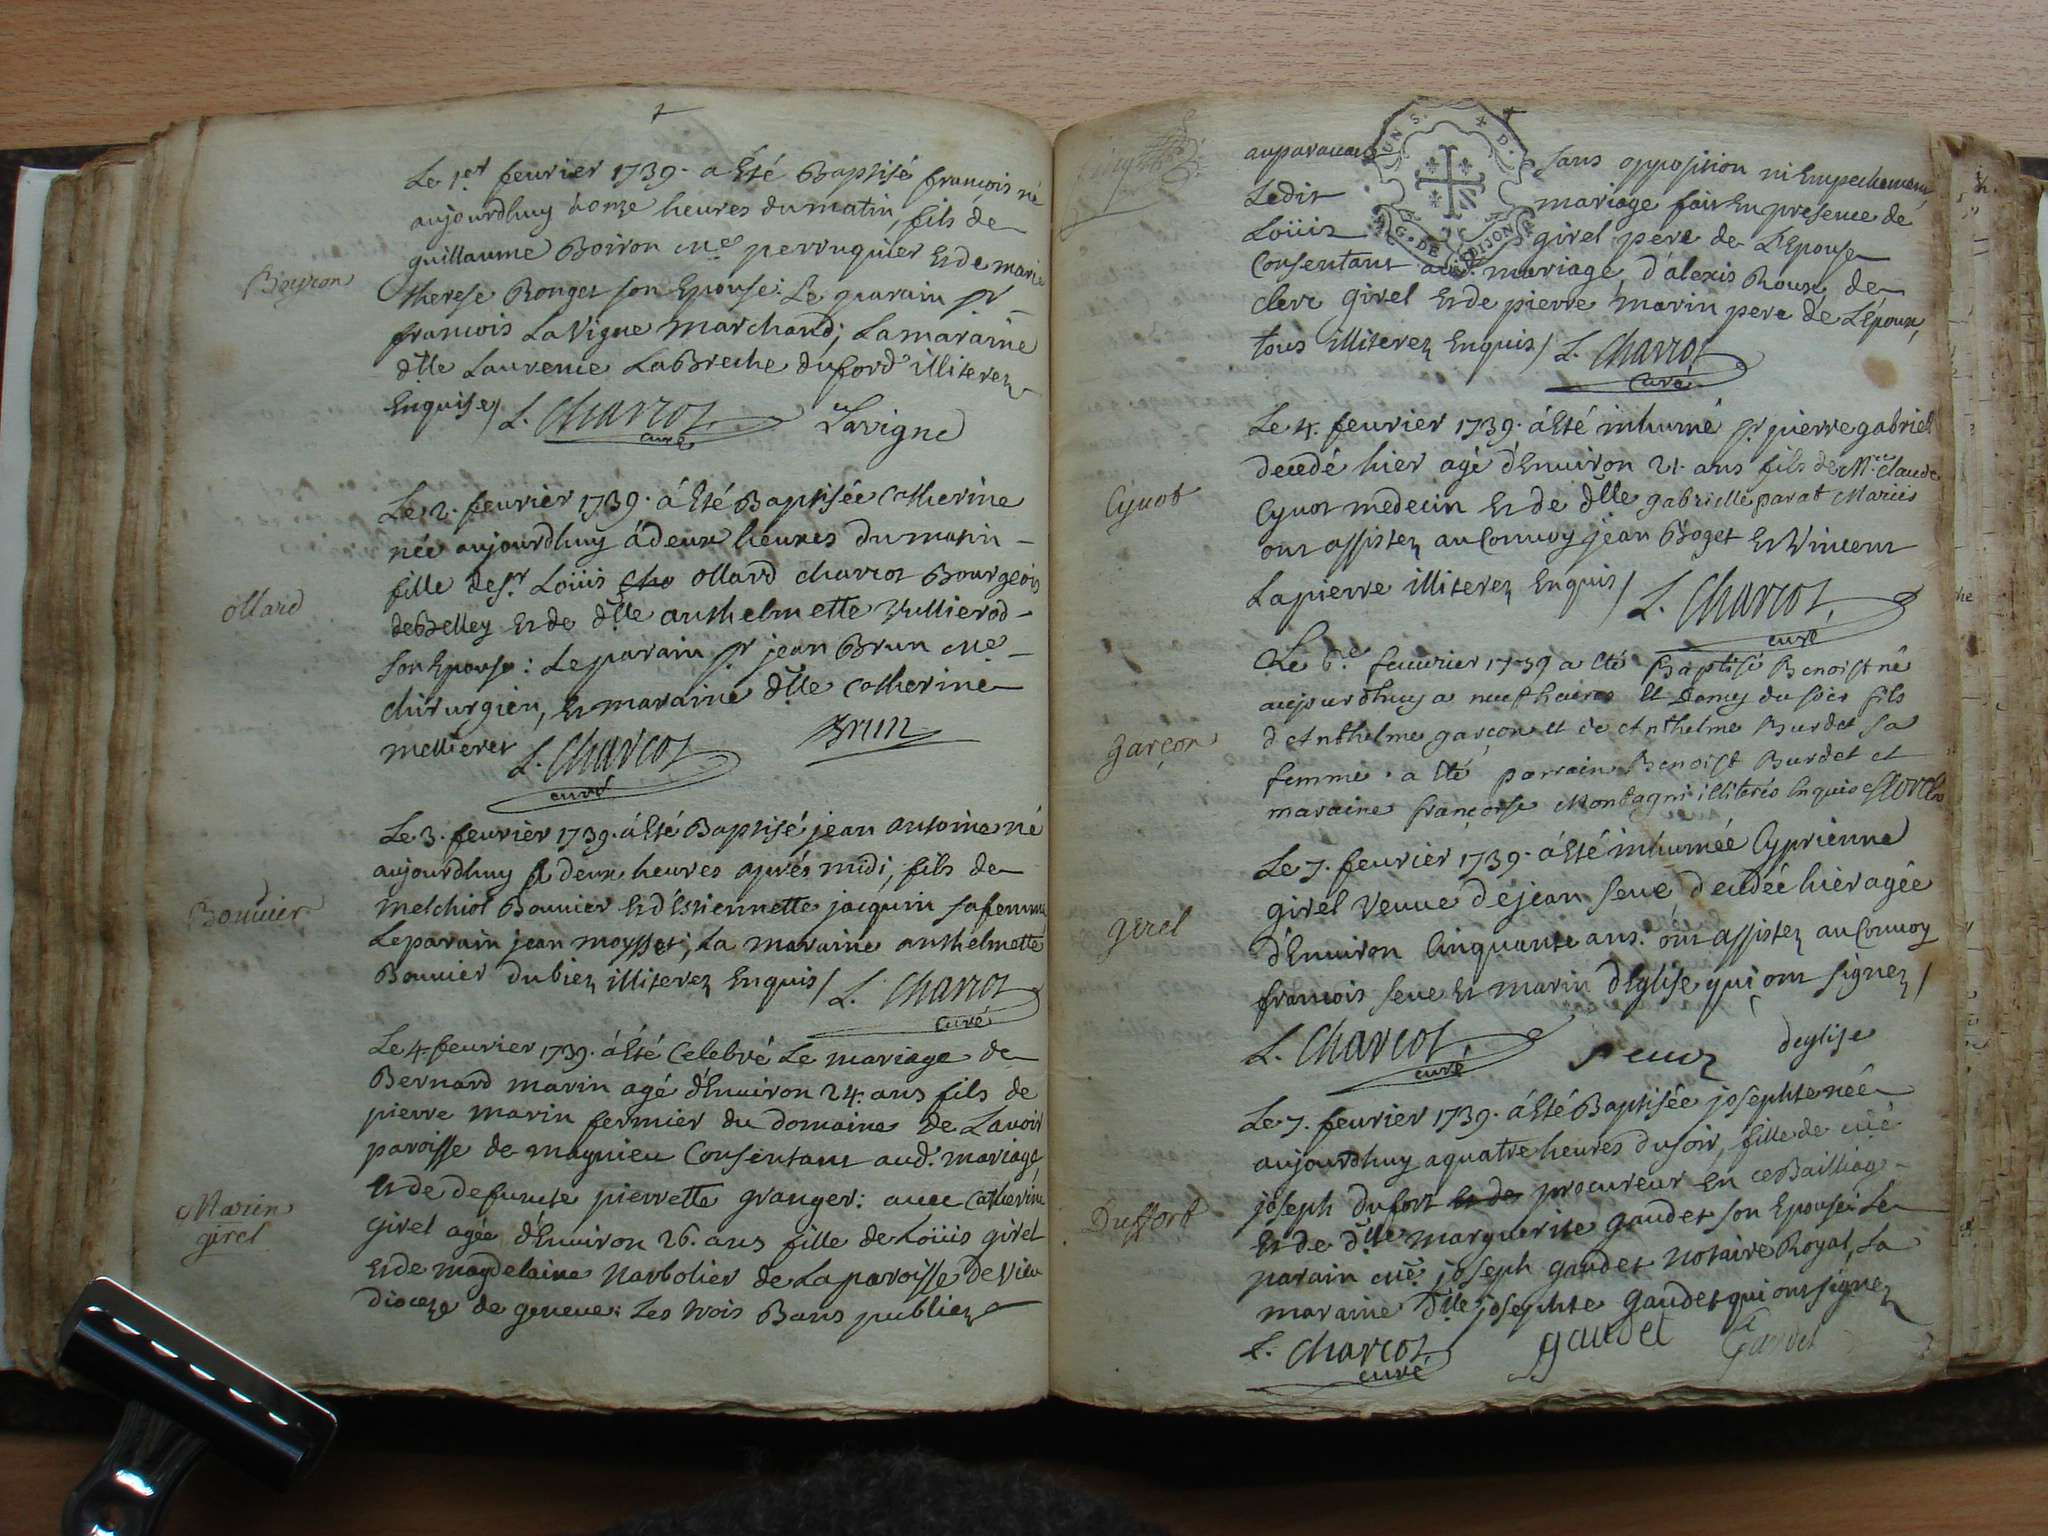 Le 1er feurier 1739. a Eté Baptisé françois né
aujourdhuy à onze heures du matin, fils de
guillaume Boiron Me perruquier et de marie
Boyron
therese Ronget son Epouse: Le parain sr
francois LaVigne Marchand; La maraine
dlle Laurence LaBreche duford illiterez
Enquise/ L. Charcot curé Lavigne
Le 2. feurier 1739. á Eté Baptisée Catherine
née aujourdhuy á deux heures du matin
fille de sr. Loüis Cha ollard charcot Bourgeois
ollard
de Belley et de dlle anthelmette Vullierod
son Epouse: Le parain sr jean Brun Me
chirurgien, et maraine dlle Catherine
mellieret L. Charcot curé Brun
Le 3. feurier 1739. á Eté Baptisé jean antoine né
aujourdhuy à deux heures aprés midi, fils de
Melchiol Bouuier et d'Estiennette jacquin sa femme
Bouuier
Le parain jean moysset; La maraine anthelmette
Bouuier dubiez illiterez Enquis/ L. Charcot curé
Le 4 feurier 1739. á Eté Celebré Le mariage de
Bernard marin agé d'Enuiron 24. ans fils de
pierre marin fermier du domaine de Lauoir
paroisse de magnieu Consentant aud. mariage,
et de defuncte pierrette granger: auec Catherine
Marin
girel
girel agée d'Enuiron 26. ans fille de Loüis girel
et de magdelaine Narbolier de La paroisse de Vieu
dioceze de geneue: Les trois Bans publiez
auparauant sans opposition ni Empechement,
Ledit mariage fait En presence de
Loüis girel pere de L'Epouse
Consentant aud. mariage, d'alexis Roux, de
clere girel et de pierre marin pere de L'époux,
tous illiterez Enquis/ L. Charcot curé
G. DE DIJON
Le 4. feurier 1739. á Eté inhumé sr pierre gabriel
decedé hier agé d'Enuiron 21. ans fils de Mre Claude
Cyuot
Cyuot medecin et de dlle gabrielle parat Mariés
ont assistez au Conuoy jean Boget et Vincent
Lapierre illiterez Enquis/ L. Charcot curé
Le 6.e feuurier 1739 a eté Baptisé Benoist né
aujourdhuy a neuf heures et Demy du soir fils
garçon
d'Anthelme garçon et de Anthelme Burdet sa
femme. a eté parrain Benoist Burdet et
maraine françoise Montagni illiterés Enquis
Le 7. feurier 1739. á Eté inhumée Cyprienne
girel
girel Veuue de jean Seue, decedée hier agée
d'Enuiron Cinquante ans. ont assistez au Conuoy
francois Seue et marin d'Eglise qui ont signez/
L. Charcot curé Seuoz deglise
Le 7. feurier 1739. á Eté Baptisée josephte née
aujourdhuy a quatre heures du soir, fille de Me
Duffort
joseph dufort et de procureur En ce Bailliage
et de dlle marguerite gaudet son Epouse: Le
parain Me joseph gaudet notaire Royal, La
maraine dlle josephte gaudet qui ont signez
L. Charcot curé gaudet Gaudet